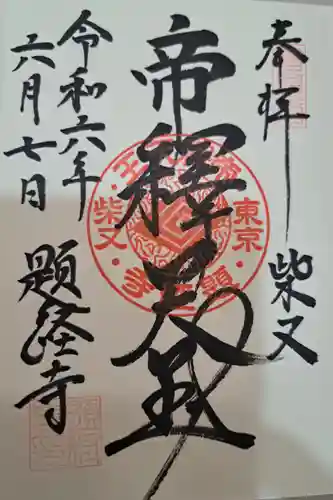 奉拝
柴又
帝釋天王
令和六年
六月七日
題経寺
東京
柴又